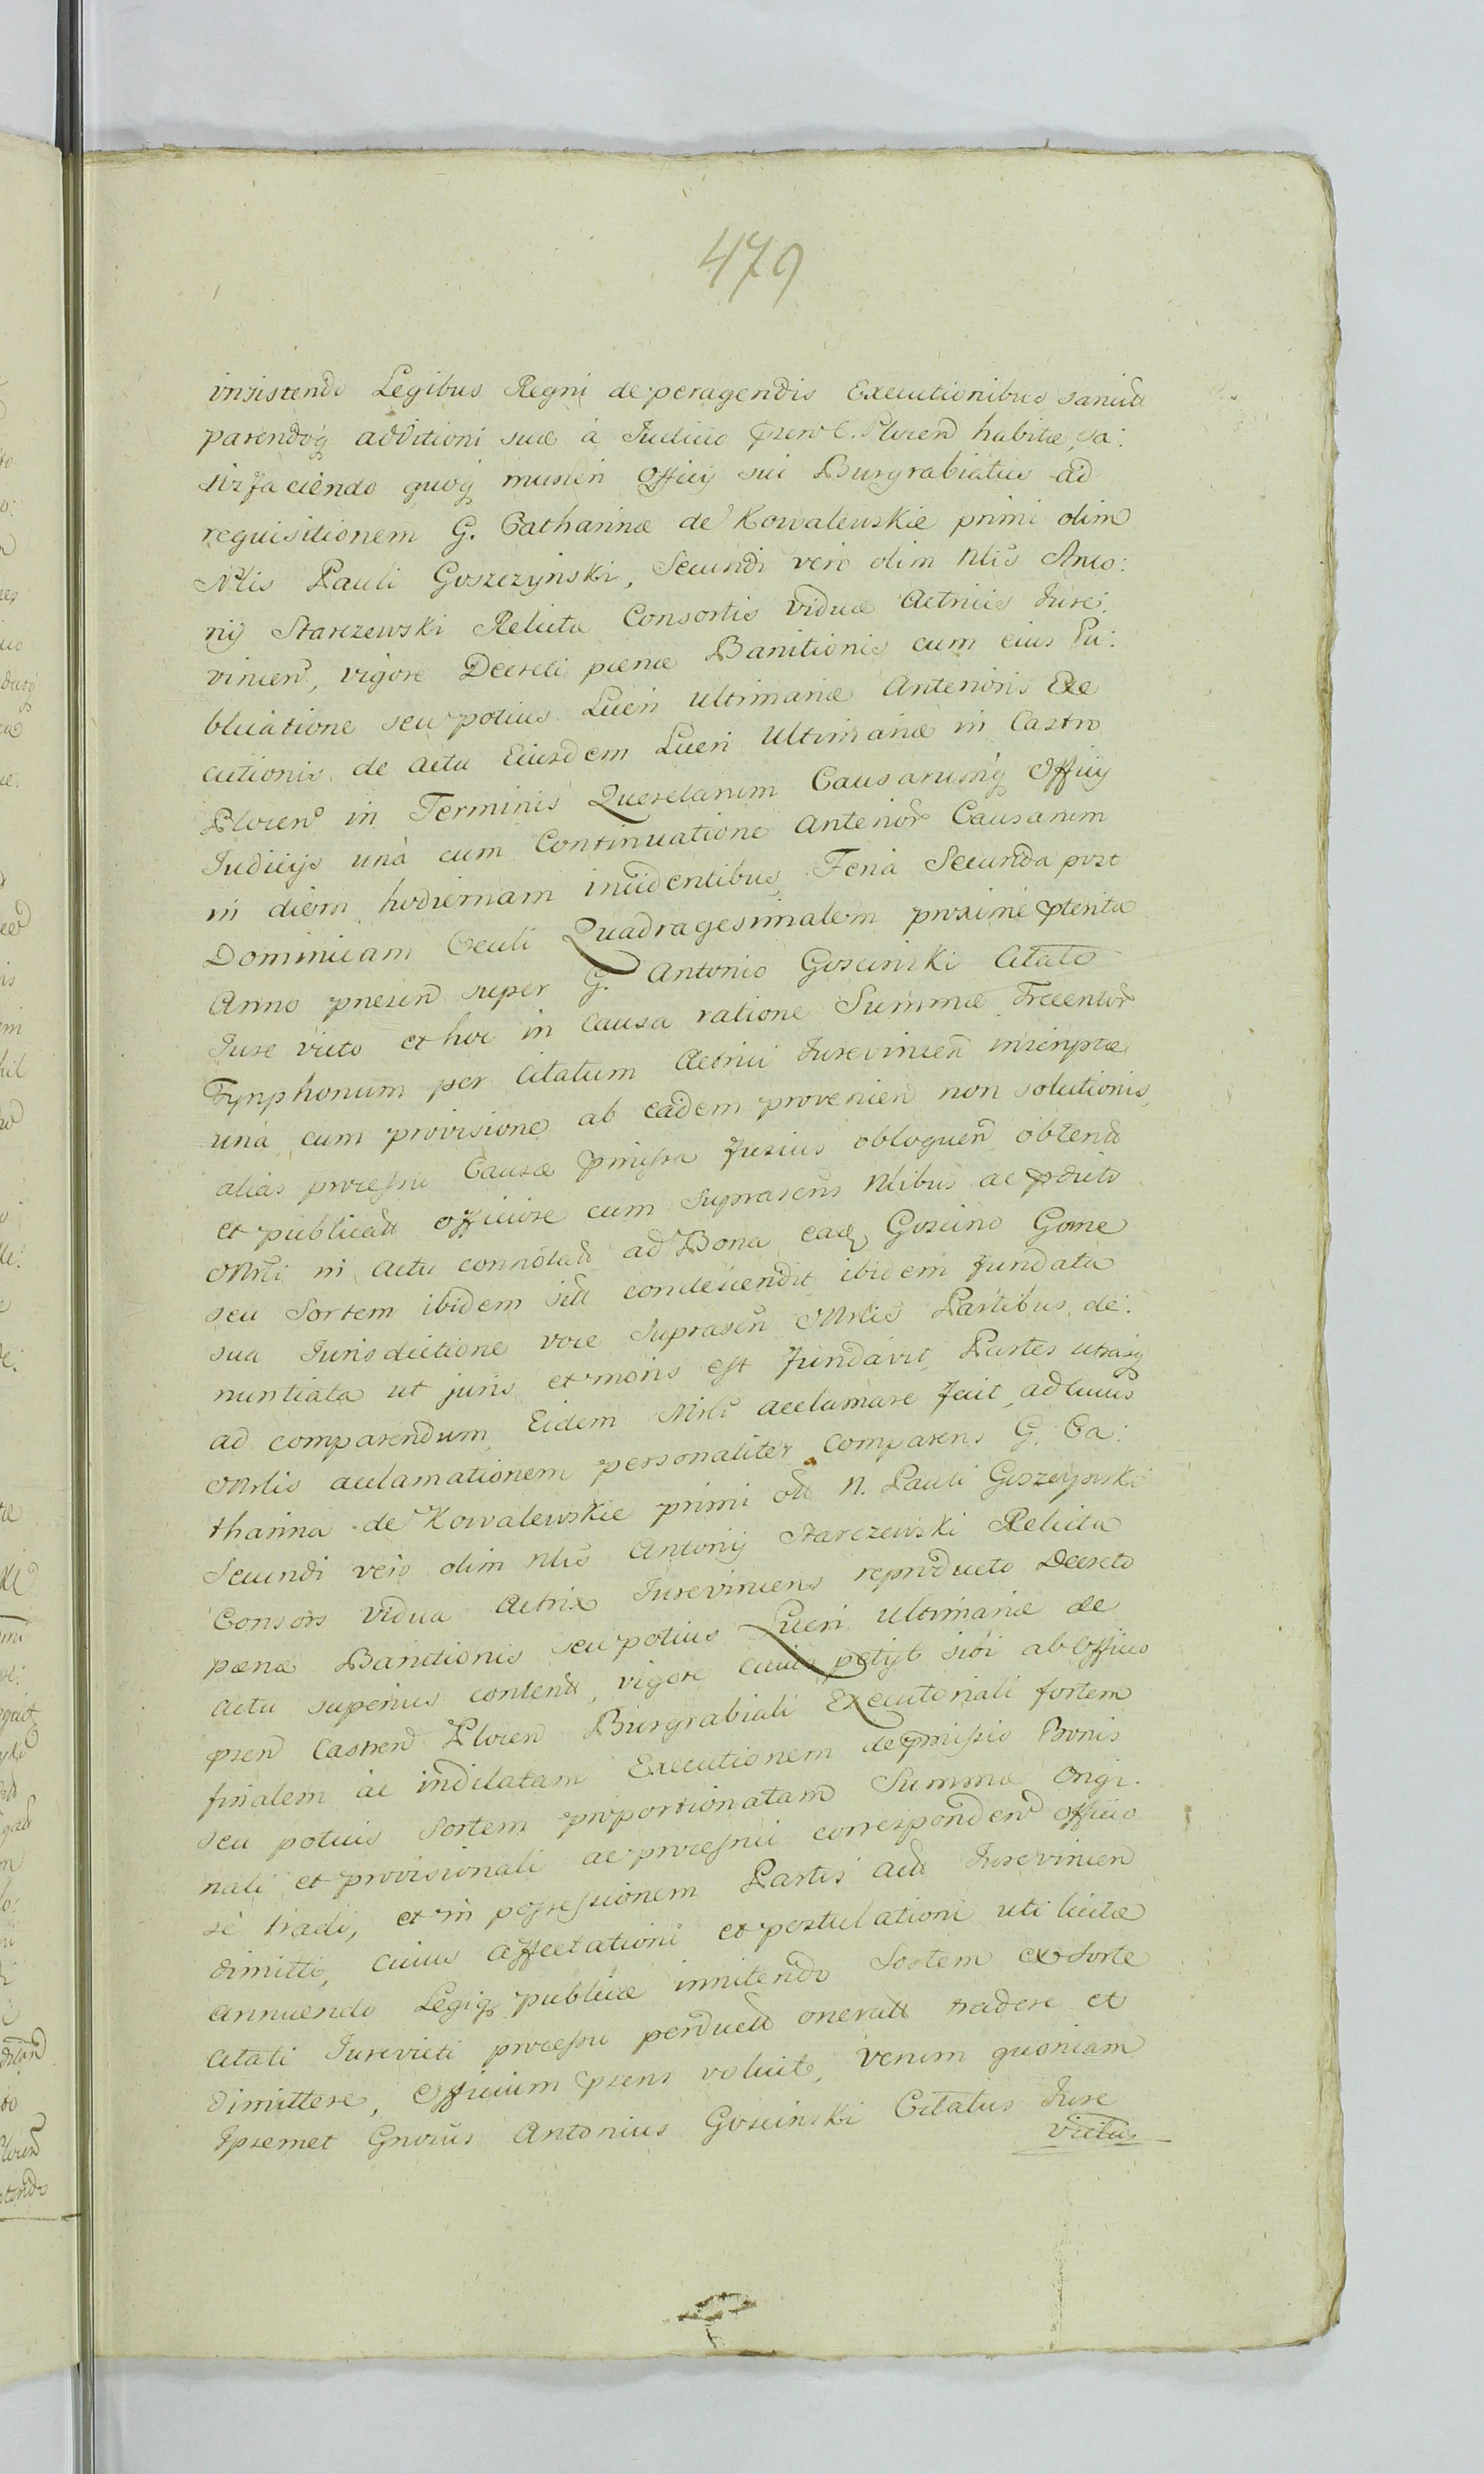 479
insistendo Legibus Regni de peragendis Executionibus sancitt
parendoq additioni suæ à Judicio psen C. Plocen habitæ, sa:
tisfaciendo quoq muneri Officij sui Burgrabiatus ad
requisitionem G. Catharinæ de Kowalewskie primi olim
Nlis Pauli Goszczynski, Secundi vero olim Nlis Anto:
nij Starczewski Relictæ Consortis Viduæ Actricis Jure:
vincen, vigore Decreti pænæ Banitionis cum eius Pu:
blicatione seu potius Lucri ultimariæ Anterioris Exe
cutionis de actu Eiusdem Lucri Ultimariæ in Castro
Plocen in Terminis Querelarum Causarumq Officij
Judicijs unà cum Continuatione Anterior Causarum
in diem hodiernam incidentibus, Feria Secunda post
Dominicam Oculi Quadragesimalem proxime pterita
Anno presen super G. Antonio Goscinski Citato
Jure victo et hoc in Causa ratione Summæ Trecentor
Tynphonum per Citatum Actrici Jurevincen inscriptæ
unà cum provisione ab eadem provenien non solutionis,
alias processu Causæ pmissa fusius obloquen obtent
et publicatt officiose cum suprascris Nlibus ac pvido
Mrli in Actu connotatt ad Bona eadq Goscino Gorne
seu Sortem ibidem sitt condescendit ibidem fundata
sua Jurisdictione voce suprascri Mrlis Partibus de:
nuntiata ut juris et moris est fundavit, Partes utrasq
ad comparendum Eidem Mrli acclamare fecit, ad cuius
Mrlis acclamationem personaliter comparens G. Ca:
tharina de Kowalewskie primi ott N. Pauli Goszczynski
Secundi vero olim Nlis Antonij Starczewski Relicta
Consors vidua Actrix Jurevincens reproducto Decreto
pænæ Banitionis seu potius Lucri Ultimariæ de
actu superius contentt, vigore cuius petijt sibi ab Officio
psen Castren Plocen Burgrabiali Executoriali fortem
finalem ac indilatam Executionem de pmissis Bonis
seu potius Sortem proportionatam Summæ Origi.
nali et provisionali ac processui corresponden officio
se tradi, et in possessionem Partis Actt Jurevincen
dimitti, cuius affectationi et postulationi uti licitæ
annuendo Legiq publicæ innitendo Sortem ex Sorte
Citati Jurevicti processu perductt oneratt tradere et
dimittere, Officium psens voluit, verum quoniam
Ipsemet Gnosus Antonius Goscinski Citatus Jure
victus